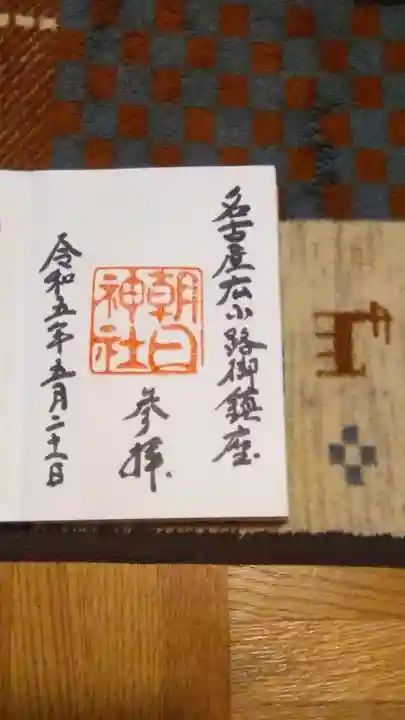 名古屋広小路御鎮座
朝日
神社
参拝
令和五年五月二十一日